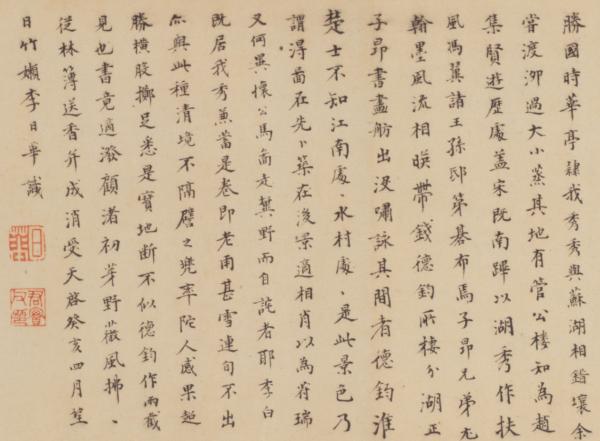 勝國時華亭隸我秀秀與蘇湖相錯壤余
嘗渡泖過大小蒸其地有管公樓知為趙
集賢遊歷處蓋宋既南蹕以湖秀作扶
風馮翼諸王孫邸第碁布焉子昂兄弟尤
翰墨風流相暎帶錢德鈞所棲分湖正
子昂書畫舫出沒嘯詠其間者德鈞淮
楚士不知江南處〻水村處〻是此景色乃
謂得啚在先卜築在後景適相肖以為符瑞
又何異懷公馬啚走冀野而自詫者耶李白
既居我秀兼蓄是卷即老雨甚雪連旬不出
亦與此種清境不隔譬之兜率陀人感果超
勝橫肢擲足悉是寶地斷不似德鈞作兩截
見也書竟適潑顧渚初芽野薇風拂〻
從林薄送香并成消受天啓癸亥四月望
日竹嬾李日華識
日華